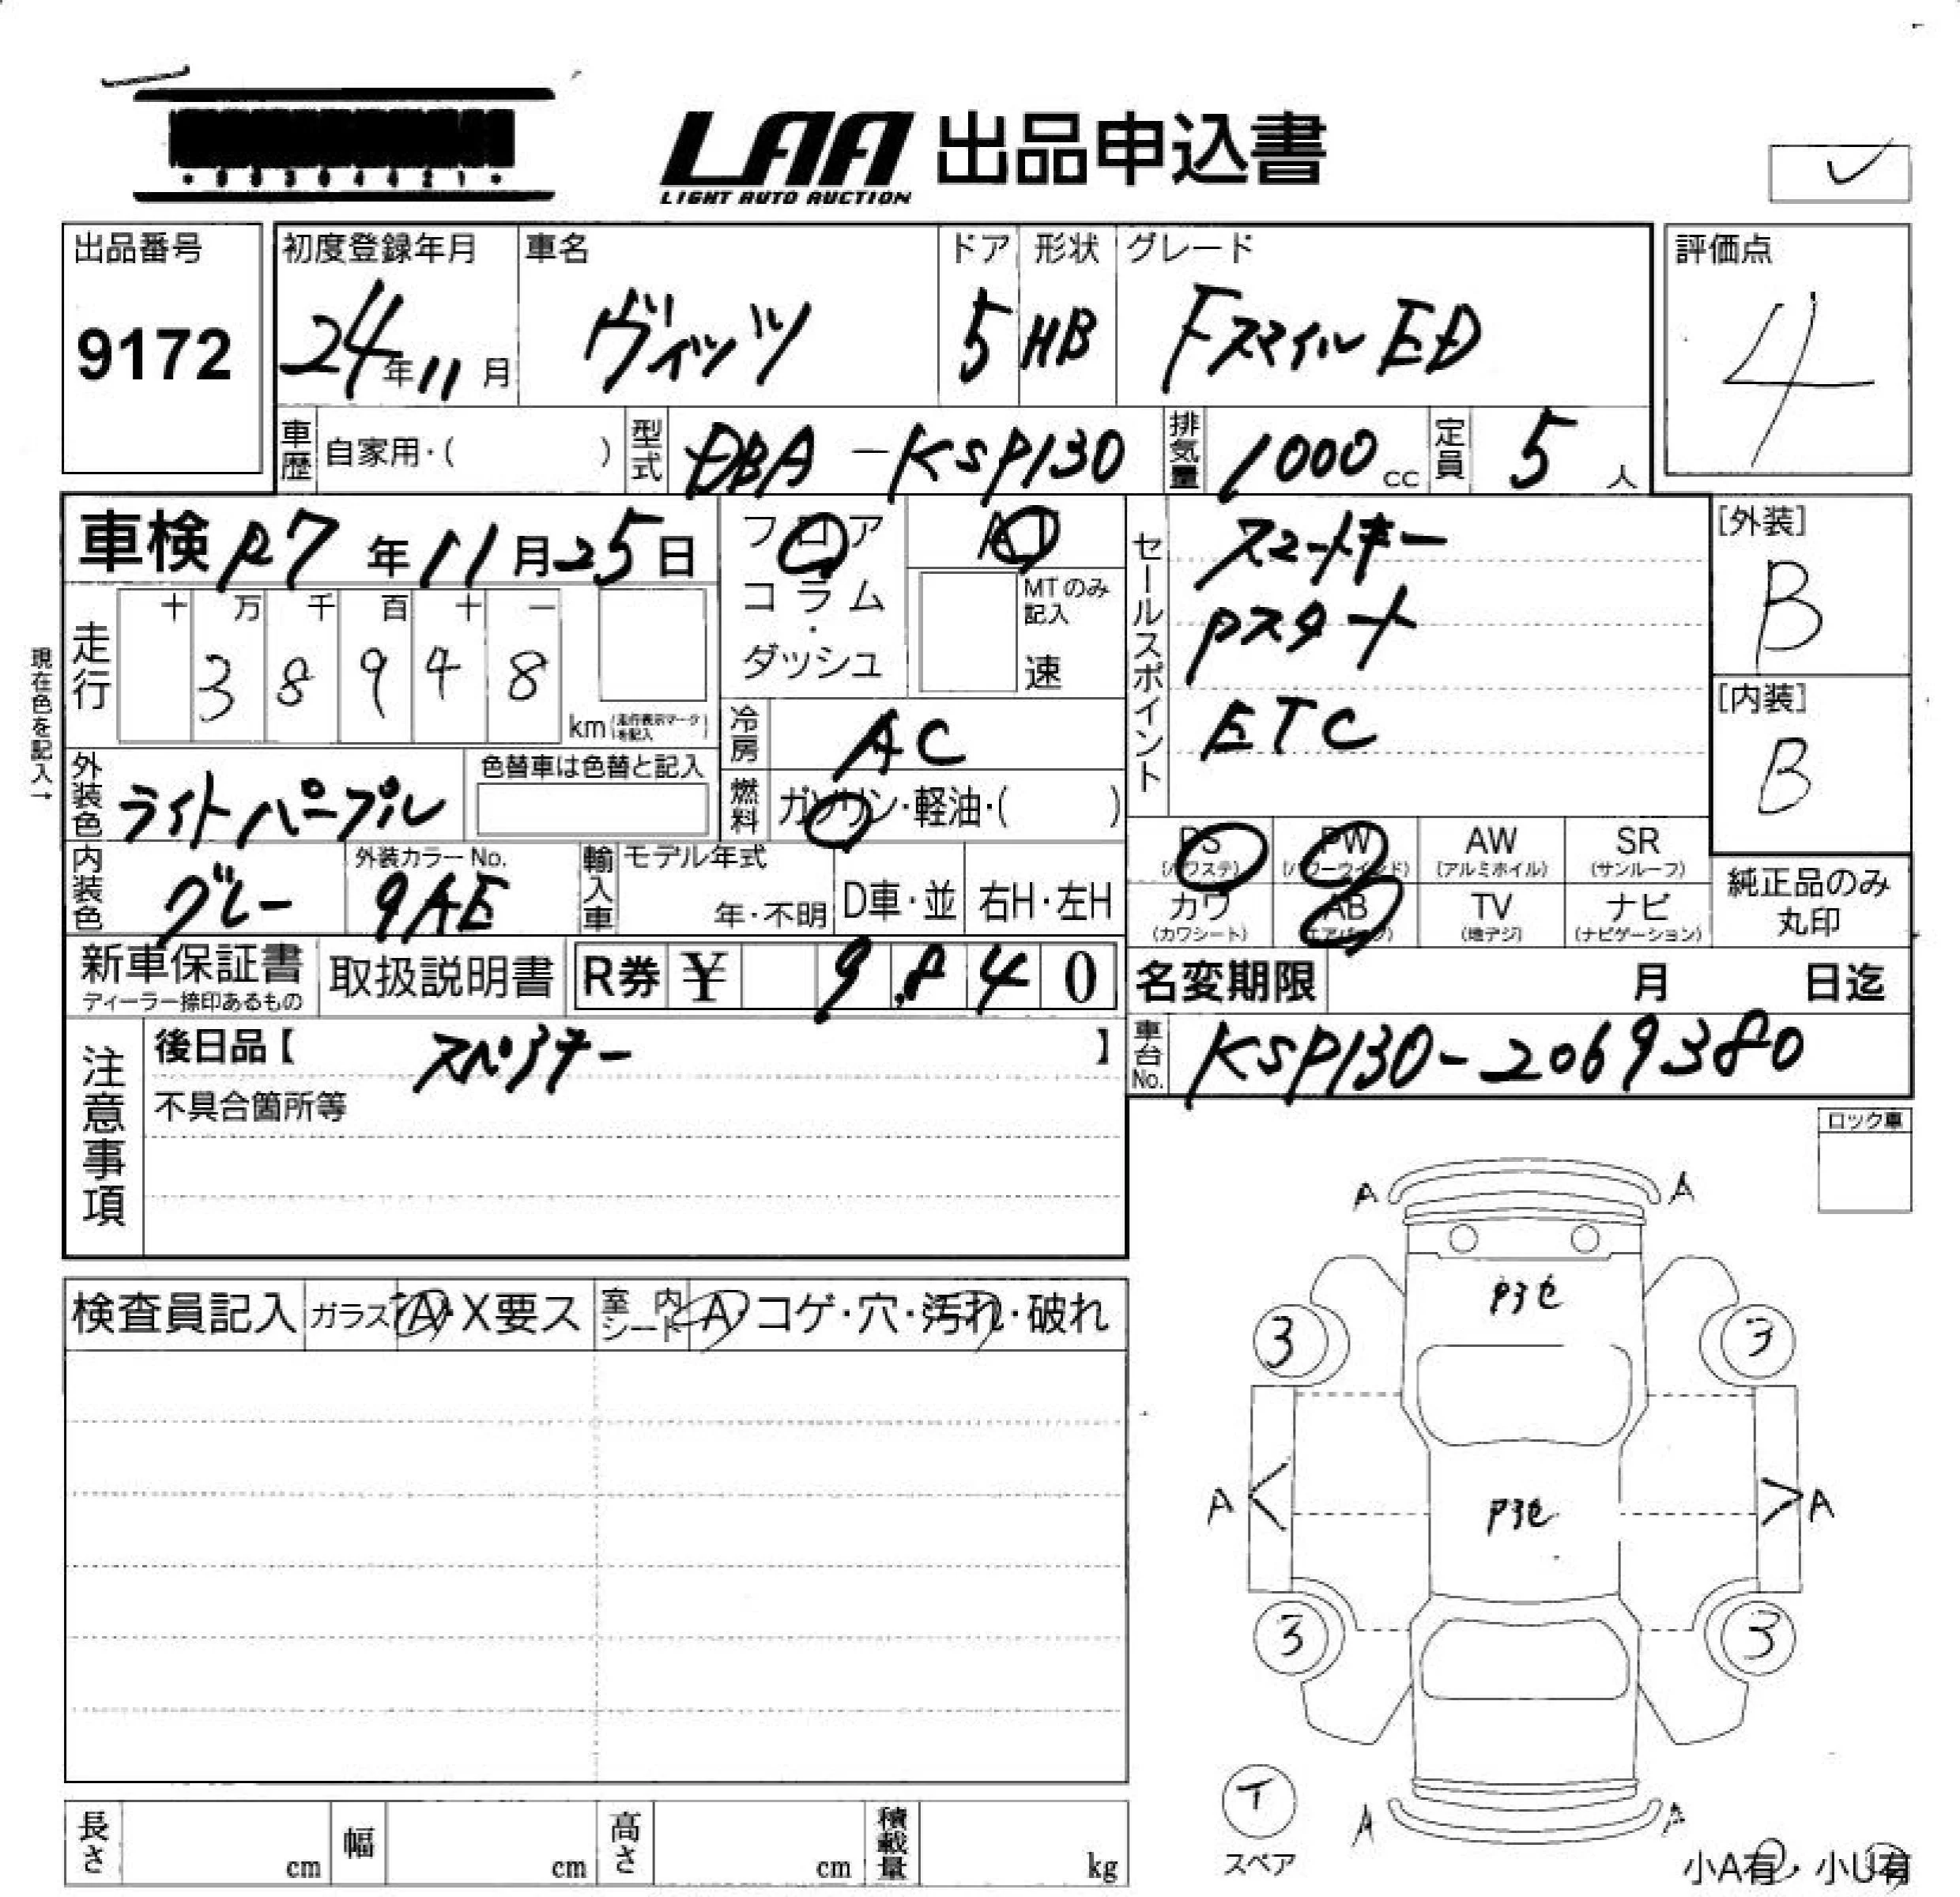 LAA 出品申込書
LIGHT AUTO AUCTION
出品番号
9172
初度登録年月
24年11月
車名
ヴィッツ
ドア
5
形状
HB
グレード
Fスマイル ED
評価点
4
車歴 自家用・( )
型式 DBA-KSP130
排気量 1000 cc
定員 5 人
車検 R7年11月25日
フロア
コラム
・
ダッシュ
AT
MTのみ
記入
速
セールスポイント
スマートキー
Pスタート
ETC
[外装]
B
[内装]
B
現在色を記入→
走行
十 万 千 百 十 一
3 8 9 4 8
km (走行表示マークを記入)
冷房 AC
燃料 ガソリン・軽油・( )
外装色 ライトパープル
色替車は色替と記入
内装色 グレー
外装カラーNo.
9AE
輸入車
モデル年式
年・不明
D車・並
右H・左H
PS (パワステ)
PW (パワーウインド)
AW (アルミホイル)
SR (サンルーフ)
カワ (カワシート)
AB (エアバック)
TV (地デジ)
ナビ (ナビゲーション)
純正品のみ
丸印
新車保証書
ディーラー捺印あるもの
取扱説明書
R券 ¥ 9,840
名変期限 月 日迄
車台No. KSP130-2069380
注意事項
後日品【 スペアキー 】
不具合箇所等
ロック車
検査員記入
ガラス A・X要ス
室内シート A・コゲ・穴・汚れ・破れ
A A
3 3
A A
3 3
T
スペア
A A
小A有・小U有
長さ cm
幅 cm
高さ cm
積載量 kg